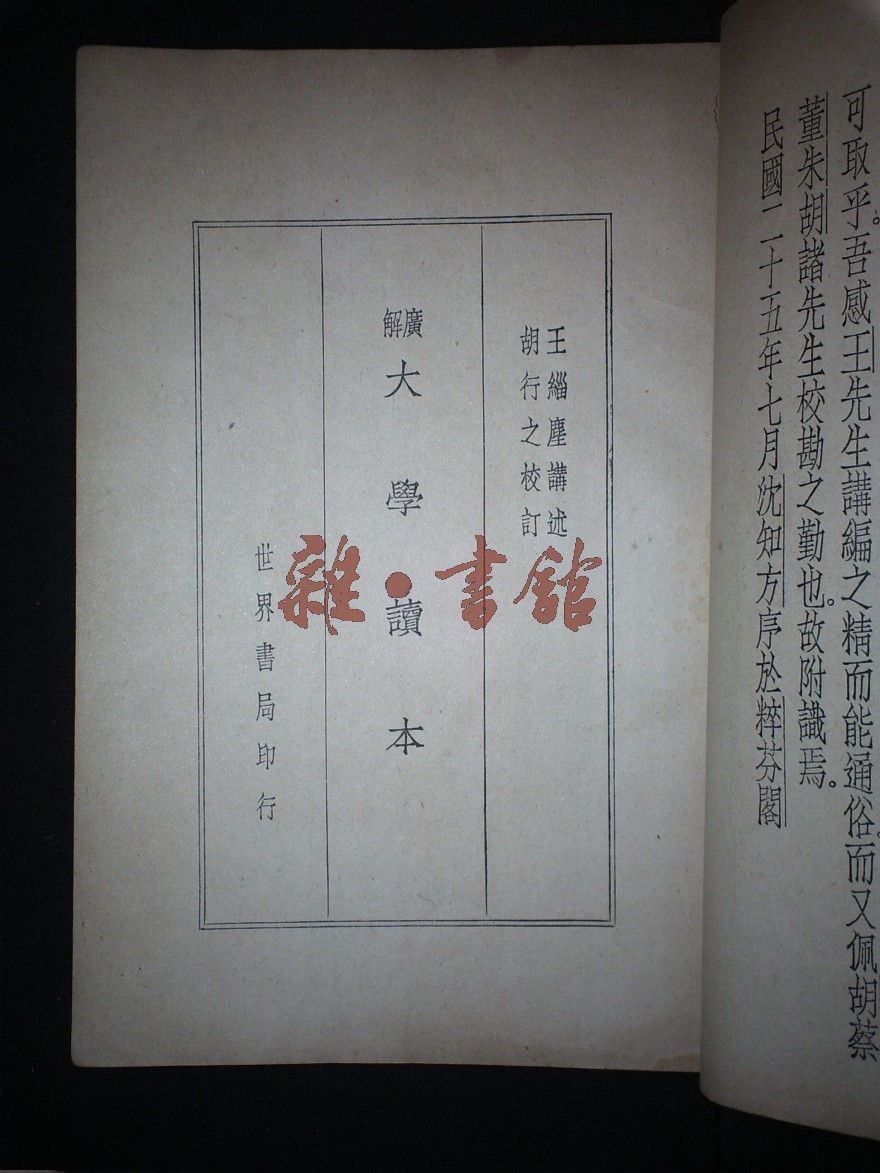 可取乎。吾感王先生講編之精而能通俗。而又佩胡蔡
董朱胡諸先生校勘之勤也。故附識焉。
民國二十五年七月沈知方序於粹芬閣
王緇塵講述
胡行之校訂
廣解
大學讀本
世界書局印行
雜·書舘